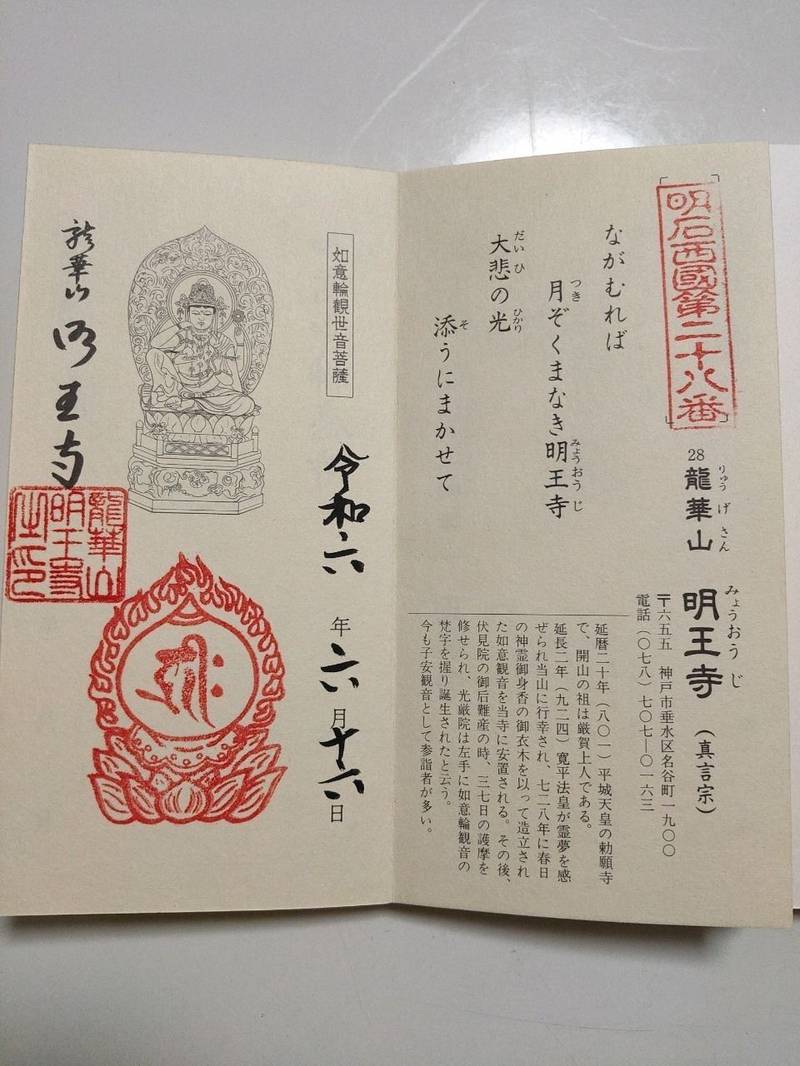 明石西國第二十八番
28 龍華山 明王寺 (真言宗)
りゅうげさん みょうおうじ
〒六五五 神戸市垂水区名谷町一九〇〇
電話(〇七八)七〇七―〇一六三
ながむれば
月ぞくまなき明王寺
つき みょうおうじ
大悲の光
だいひ ひかり
添うにまかせて
そ
延暦二十年(八〇一)平城天皇の勅願寺
で、開山の祖は厳賀上人である。
延長二年(九二四)寛平法皇が霊夢を感
ぜられ当山に行幸され、七二八年に春日
の神霊御身香の御衣木を以って造立され
た如意観音を当寺に安置される。その後、
伏見院の御后難産の時、三七日の護摩を
修せられ、光厳院は左手に如意輪観音の
梵字を握り誕生されたと云う。
今も子安観音として参詣者が多い。
如意輪観世音菩薩
令和六年六月十六日
龍華山 明王寺
龍華山
明王寺
之印